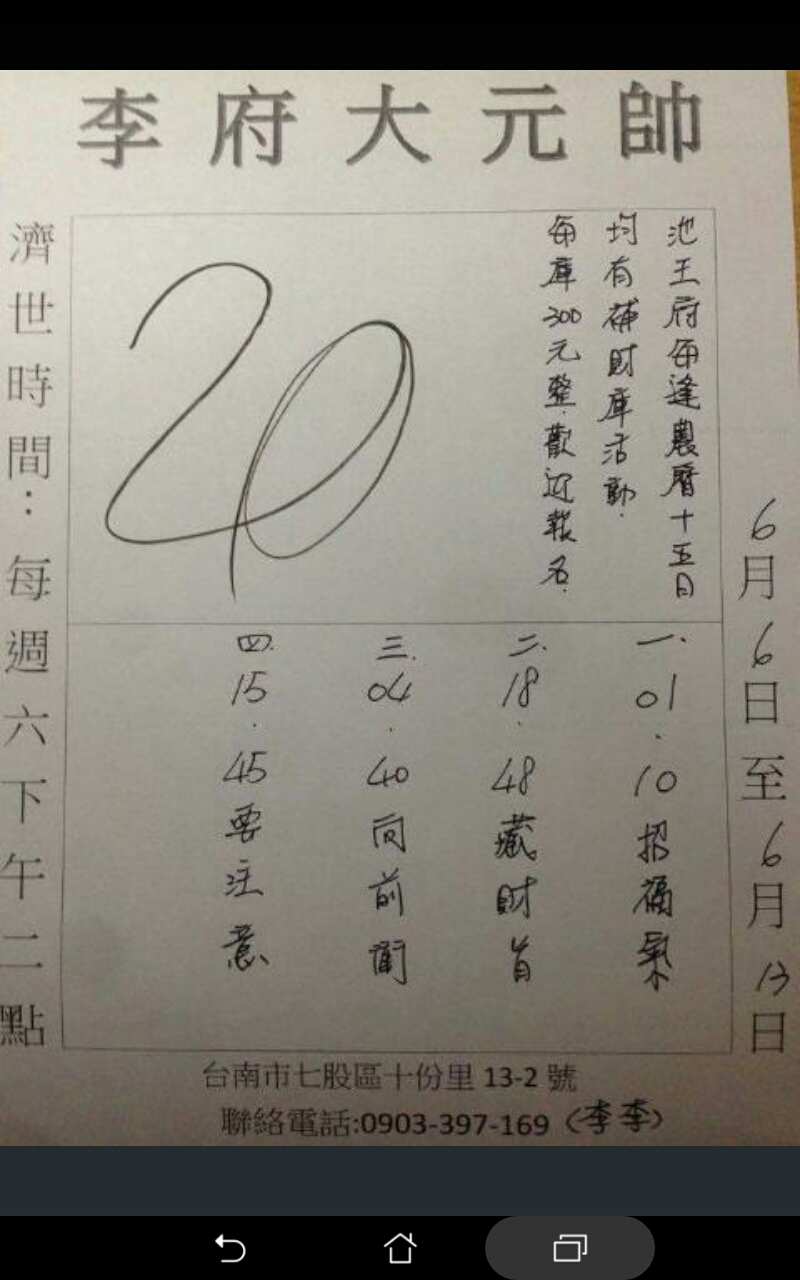 李府大元帥
池王府每逢農曆十五日
均有補財庫活動.
每庫300元整.歡迎報名.
20
一.01.10招福氣
二.18.48藏財首
三.04.40向前衝
四.15.45要注意
濟世時間：每週六下午二點
6月6日至6月13日
台南市七股區十份里 13-2 號
聯絡電話:0903-397-169（李李）